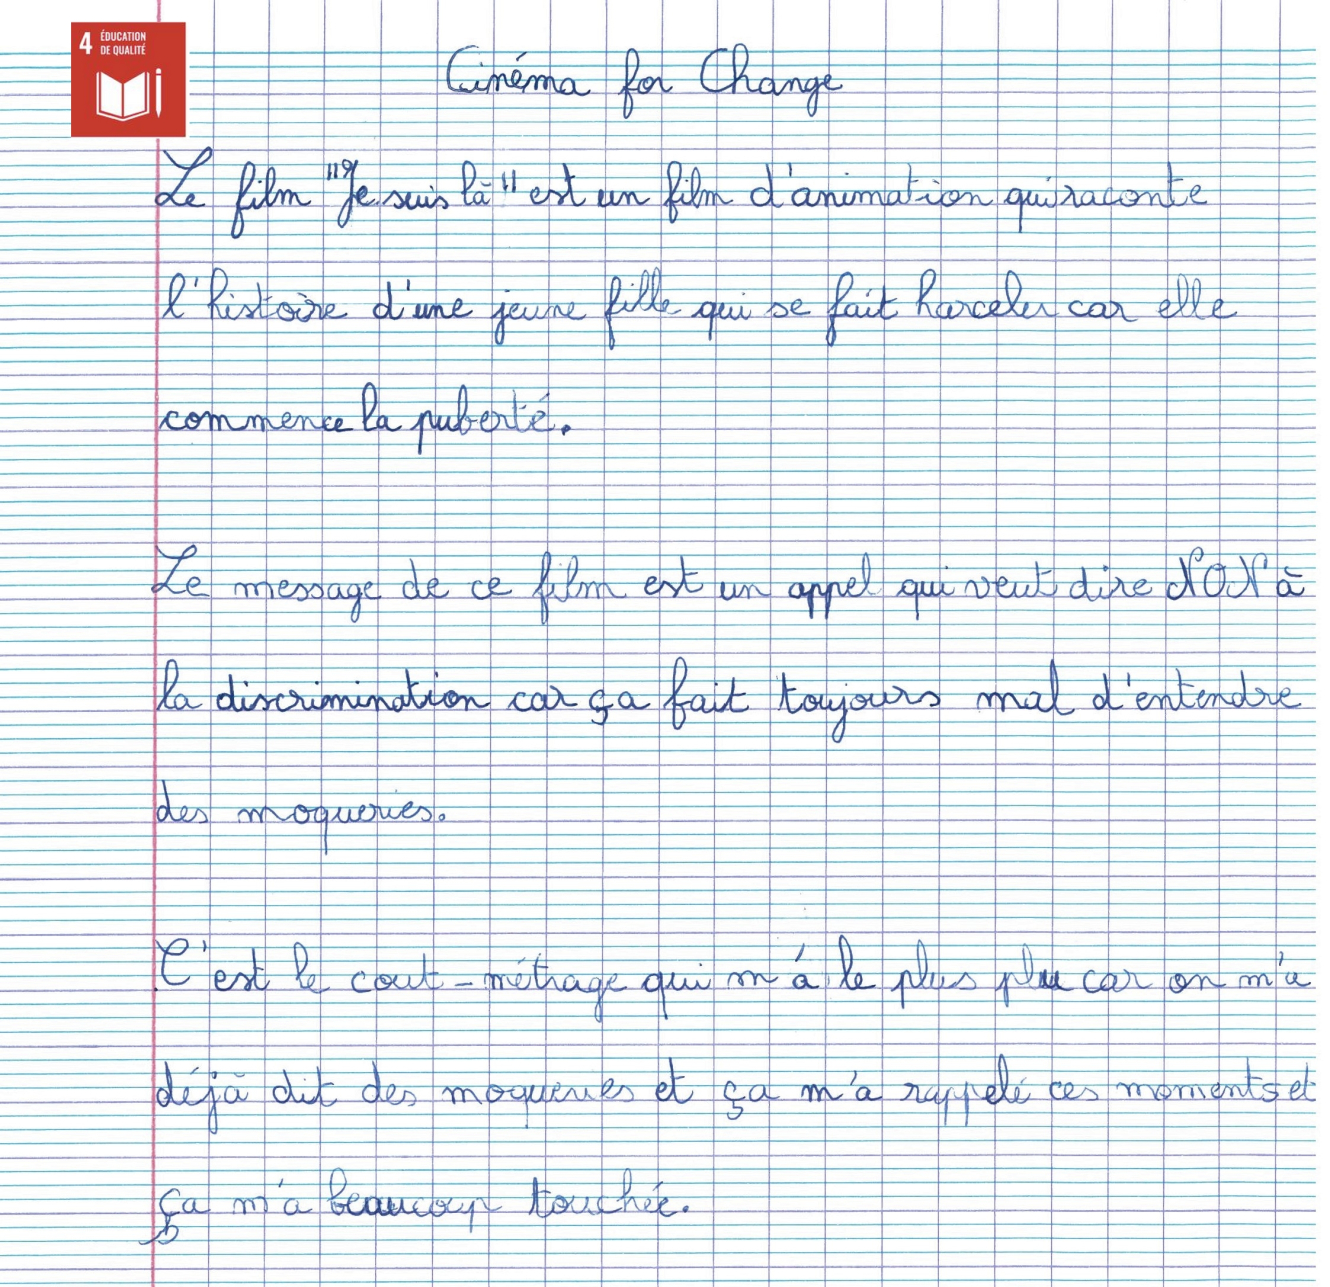 4 ÉDUCATION
DE QUALITÉ
Cinéma for Change
Le film "Je suis là" est un film d'animation qui raconte
l'histoire d'une jeune fille qui se fait harceler car elle
commence la puberté.
Le message de ce film est un appel qui veut dire NON à
la discrimination car ça fait toujours mal d'entendre
des moqueries.
C'est le cout-métrage qui m'á le plus plu car on m'a
déjà dit des moqueries et ça m'a rappelé ces moments et
ça m'a beaucoup touchée.